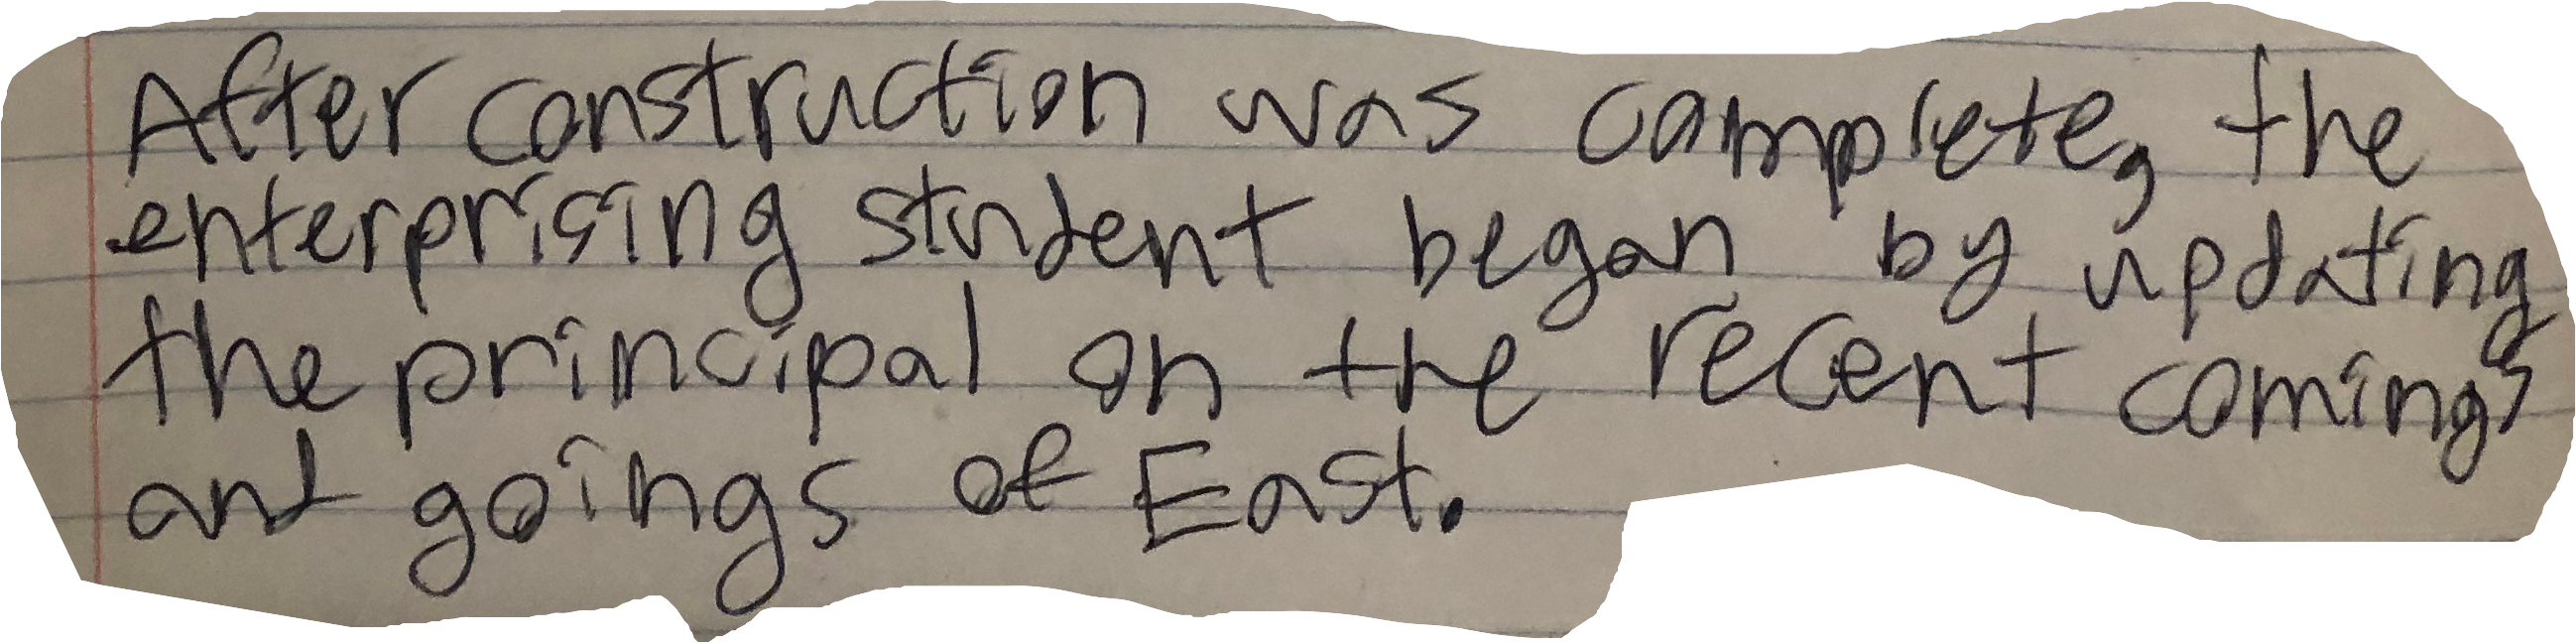 After construction was complete, the
enterprising student began by updating
the principal on the recent comings
and goings of East.